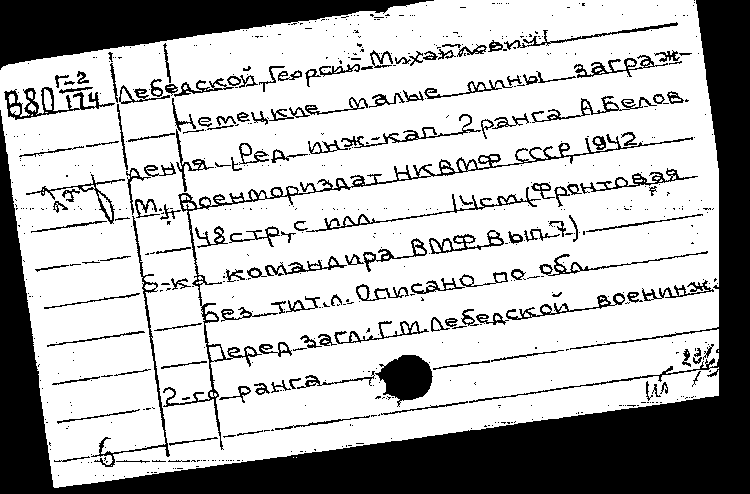 В80 Г-2/174
Лебедской, Георгий Михайлович.
Немецкие малые мины заграж-
дения. [Ред. инж.-кап. 2 ранга А. Белов.
М.], Военмориздат НКВМФ СССР, 1942.
48 стр., с илл. 14 см. (Фронтовая
б-ка командира ВМФ. Вып. 7).
Без тит. л. Описано по обл.
Перед загл.: Г.М. Лебедской военинж.
2-го ранга.
6